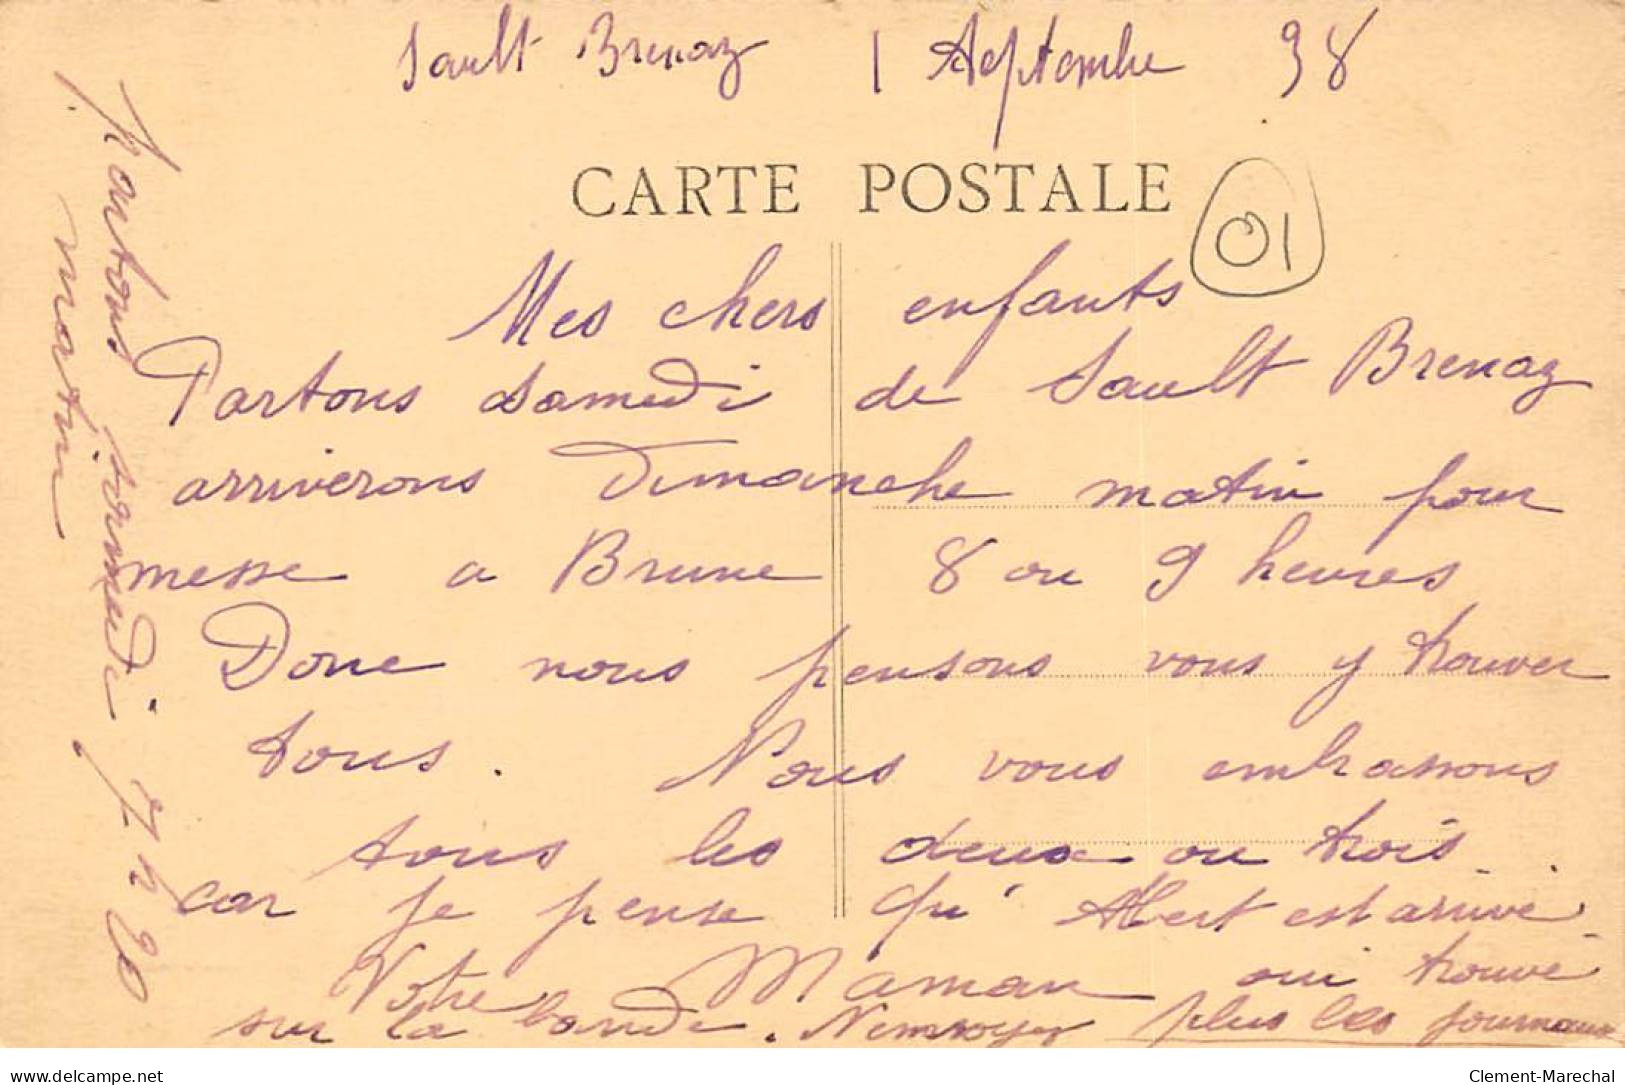 Sault Brenaz 1 Septembre 38
CARTE POSTALE
01
Mes chers enfants
Partons samedi de Sault Brenaz
arriverons Dimanche matin pour
messe a Brune 8 ou 9 heures
Donc nous pensons vous y trouver
tous. Nous vous embrassons
tous les deux ou trois
car je pense qu'Albert est arrivé.
Votre Maman oui trouvé
sur la bande. N'envoyez plus les journaux
Partons samedi 7 h 20
matin
Clement-Marechal